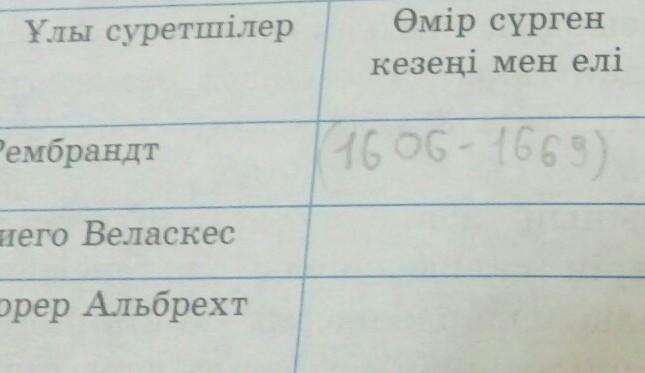 Ұлы суретшілер
Өмір сүрген
кезеңі мен елі
Рембрандт
(1606-1669)
иего Веласкес
юрер Альбрехт